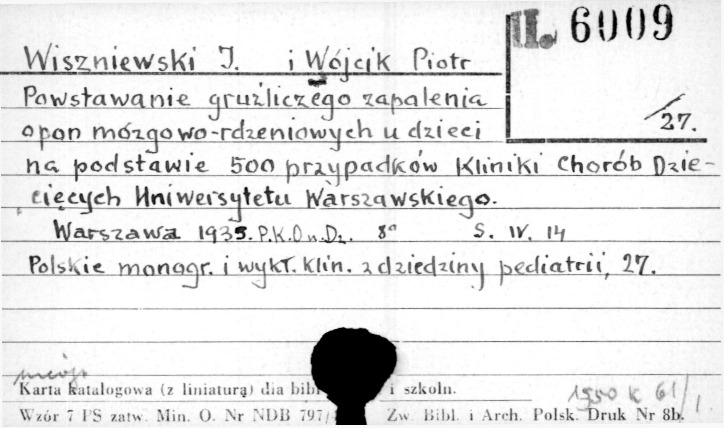 II. 6009
Wiszniewski J. i Wójcik Piotr
Powstawanie gruźliczego zapalenia
/27.
opon mózgowo-rdzeniowych u dzieci
na podstawie 500 przypadków Kliniki Chorób Dzie-
cięcych Uniwersytetu Warszawskiego.
Warszawa 1935. P.K.O n. Dz. 8° S. IV. 14
Polskie monogr. i wykł. klin. z dziedziny pediatrii, 27.
Karta katalogowa (z liniaturą) dla bibl i szkoln.
1950 K 61/1
Wzór 7 PS zatw. Min. O. Nr NDB 797/ Zw. Bibl. i Arch. Polsk. Druk Nr 8b.